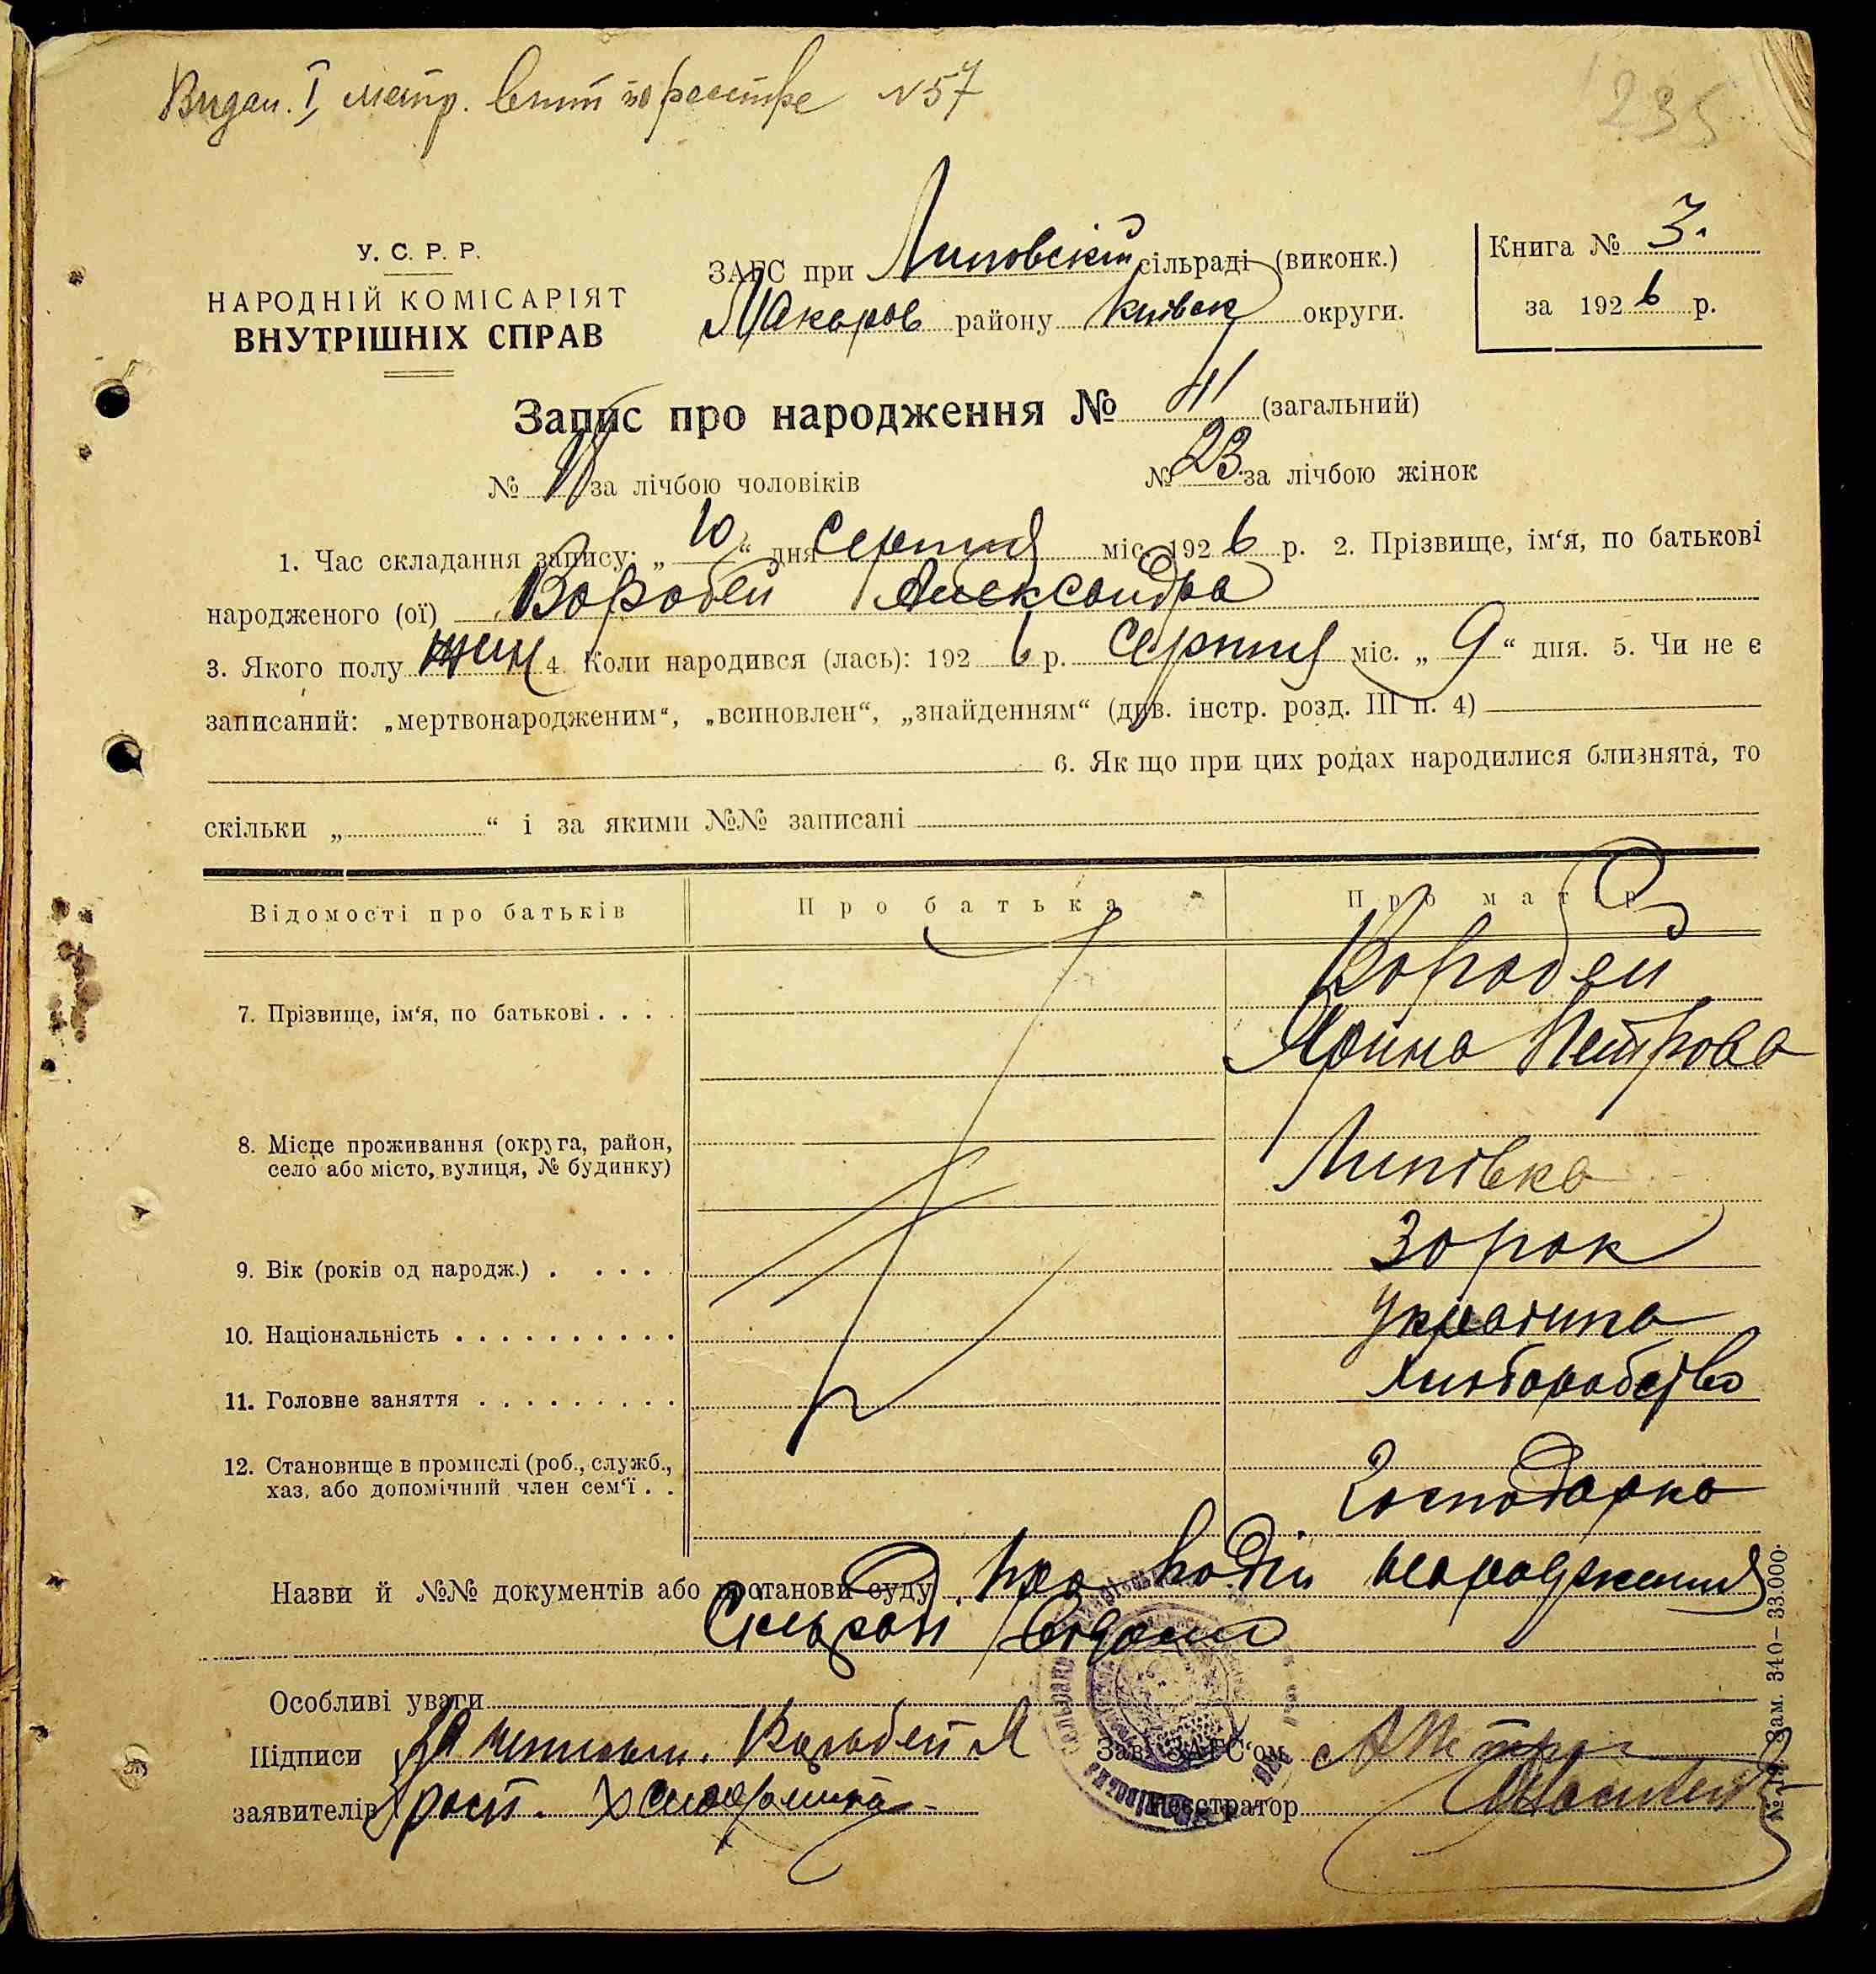 Видан. I метр. витяг по реєстре №57
235
У. С. Р. Р.
НАРОДНІЙ КОМІСАРІЯТ
ВНУТРІШНІХ СПРАВ
ЗАГС при Липовский сільраді (виконк.)
Макаров району Київск округи.
Книга № 3.
за 1926 р.
Запис про народження № 41 (загальний)
№ за лічбою чоловіків № 23 за лічбою жінок
1. Час складання запису: „10“ дня Серпня міс. 1926 р. 2. Прізвище, ім‘я, по батькові
народженого (ої) Воробей Александра
3. Якого полу жин 4. Коли народився (лась): 1926 р. Серпня міс. „9“ дня. 5. Чи не є
записаний: „мертвонародженим“, „всиновлен“, „знайденням“ (див. інстр. розд. III п. 4)
6. Як що при цих родах народилися близнята, то
скільки „ “ і за якими №№ записані
Відомості про батьків Про батька Про матір
7. Прізвище, ім‘я, по батькові . . . .
Воробей
Ярина Петрова
8. Місце проживання (округа, район,
село або місто, вулиця, № будинку)
Липівка
9. Вік (років од народж.) . . . .
30 рок
10. Національність . . . . . . . . . .
Украінка
11. Головне заняття . . . . . . . . .
Хліборобство
12. Становище в промислі (роб., служб.,
хаз. або допомічний член сем‘ї . .
Господарка
Назви й №№ документів або постанови суду Про подію народження
Сільраді відомо
Особливі уваги
Підписи Воробей Я Зав. ЗАГС‘ом
заявителів Реєстратор
Зам. 340—33.000.